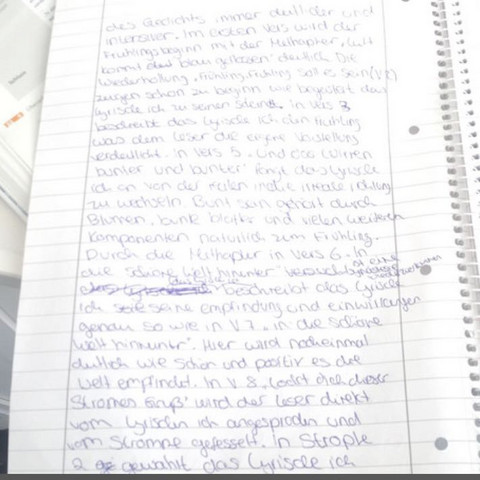 des Gedichts immer deutlicher und
intensiver. Im ersten Vers wird der
Frühlingsbeginn mit der Methapher, Luft
kommt das blau geflossen' deutlich. Die
Wiederholung, Frühling, Frühling soll es sein (V2)
zeigen schon zu beginn wie begeistert das
lyrische ich zu seinen scheint. in Vers 3
beschreibt das Lyrische Ich den Frühling
was dem Leser die eigene Vorstellung
verdeutlicht. in Vers 5. und das wirren
bunter und bunter' fängt das lyrische
ich an von der realen in die irreale richtung
zu wechseln. Bunt sein gehört durch
Blumen, bunte blätter und vielen weiteren
Komponenten natürlich zum Frühling.
Durch die Methapher in Vers 6. in
die schöne Welt hinunter'
beschreibt das Lyrische
ich seine empfindung und
genau so wie in V.7. in die schöne
Welt hinunter". Hier wird nocheinmal
deutlich wie schön und positiv es die
Welt empfindet. In V 8, lockt dich dieser
Stromes Gruß' wird der Leser direkt
vom Lyrischen ich angesprochen und
vom Strome gefesselt. in Strophe
2 gewährt das Lyrische ich